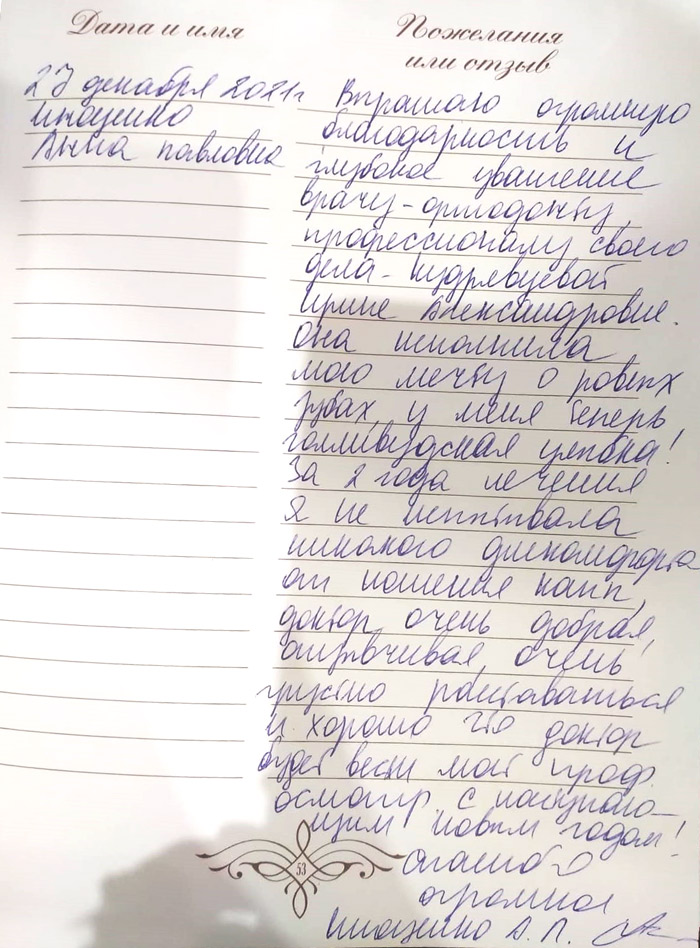 Дата и имя
Пожелания
или отзыв
27 декабря 2021г
Игнаценко
Анна павловна
Выражаю огромную
благодарность и
глубокое уважение
врачу-ортодонту,
профессионалу своего
дела - Кудрявцевой
Ирине Александровне.
Она исполнила
мою мечту о ровных
зубах, у меня теперь
голливудская улыбка!
За 2 года лечения
я не испытывала
никакого дискомфорта
от ношения капп,
доктор очень добрая,
отзывчивая, очень
грустно расставаться
и хорошо что доктор
будет вести мой проф.
осмотр. С наступаю-
щим новым годом!
спасибо
огромное
53
А.П.